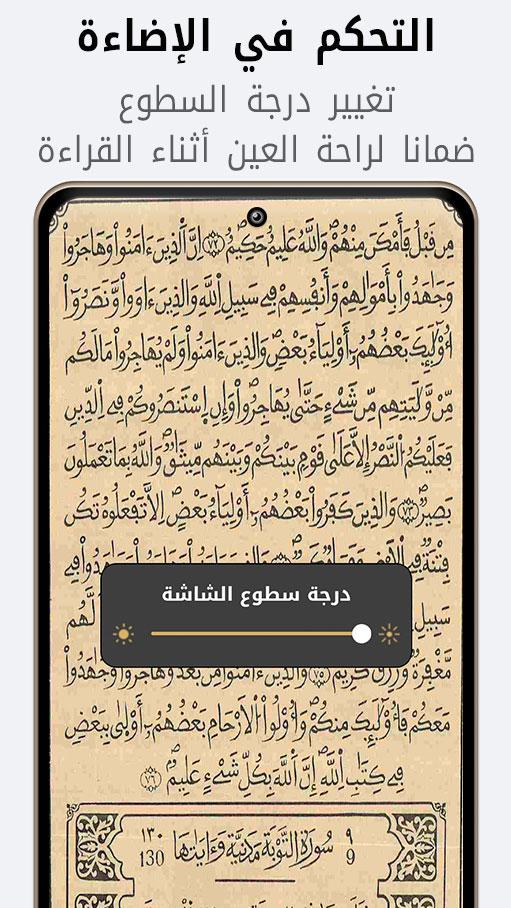 التحكم في الإضاءة
تغيير درجة السطوع
ضمانا لراحة العين أثناء القراءة
مِن قَبْلُ فَأَمْكَنَ مِنْهُمْ وَاللَّهُ عَلِيمٌ حَكِيمٌ ٧٢ إِنَّ الَّذِينَ ءَامَنُوا وَهَاجَرُوا
وَجَٰهَدُوا بِأَمْوَٰلِهِمْ وَأَنفُسِهِمْ فِي سَبِيلِ اللَّهِ وَالَّذِينَ ءَاوَوا وَّنَصَرُوا
أُوْلَٰئِكَ بَعْضُهُمْ أَوْلِيَاءُ بَعْضٍ وَالَّذِينَ ءَامَنُوا وَلَمْ يُهَاجِرُوا مَا لَكُم
مِّنْ وَّلَٰيَتِهِم مِّن شَيْءٍ حَتَّىٰ يُهَاجِرُوا وَإِنِ اِسْتَنصَرُوكُمْ فِي الدِّينِ
فَعَلَيْكُمُ النَّصْرُ إِلَّا عَلَىٰ قَوْمٍ بَيْنَكُمْ وَبَيْنَهُم مِّيثَٰقٌ وَاللَّهُ بِمَا تَعْمَلُونَ
بَصِيرٌ ٧٣ وَالَّذِينَ كَفَرُوا بَعْضُهُمْ أَوْلِيَاءُ بَعْضٍ إِلَّا تَفْعَلُوهُ تَكُن
فِتْنَةٌ فِي
درجة سطوع الشاشة
سَبِيلِ لَّهُم
مَّغْفِرَةٌ وَرِزْقٌ كَرِيمٌ ٧٥ وَالَّذِينَ ءَامَنُوا مِن بَعْدُ وَهَاجَرُوا وَجَٰهَدُوا
مَعَكُمْ فَأُوْلَٰئِكَ مِنكُمْ وَأُوْلُوا الْأَرْحَامِ بَعْضُهُمْ أَوْلَىٰ بِبَعْضٍ
فِي كِتَٰبِ اللَّهِ إِنَّ اللَّهَ بِكُلِّ شَيْءٍ عَلِيمٌ ٧٦
٩ سُورَةُ التَّوْبَةِ مَدَنِيَّةٌ وَءَايَٰتُهَا ١٣٠
9 130